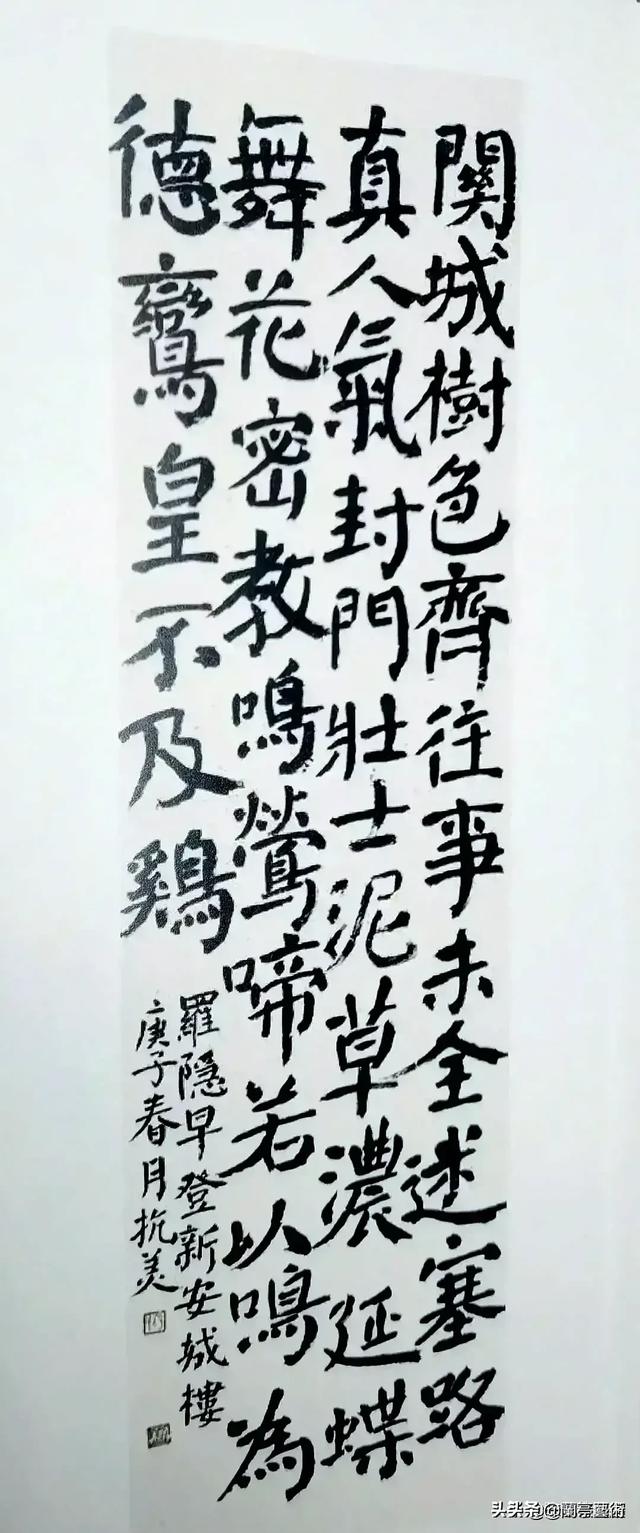 関城樹色齊往事未全迷塞路
真人氣封門壯士泥草濃延蝶
舞花密教鳴鶯啼若以鳴為
德鸞皇不及鷄
羅隐早登新安城樓
庚子春月抗美
头头杀 @蘭亭藝術